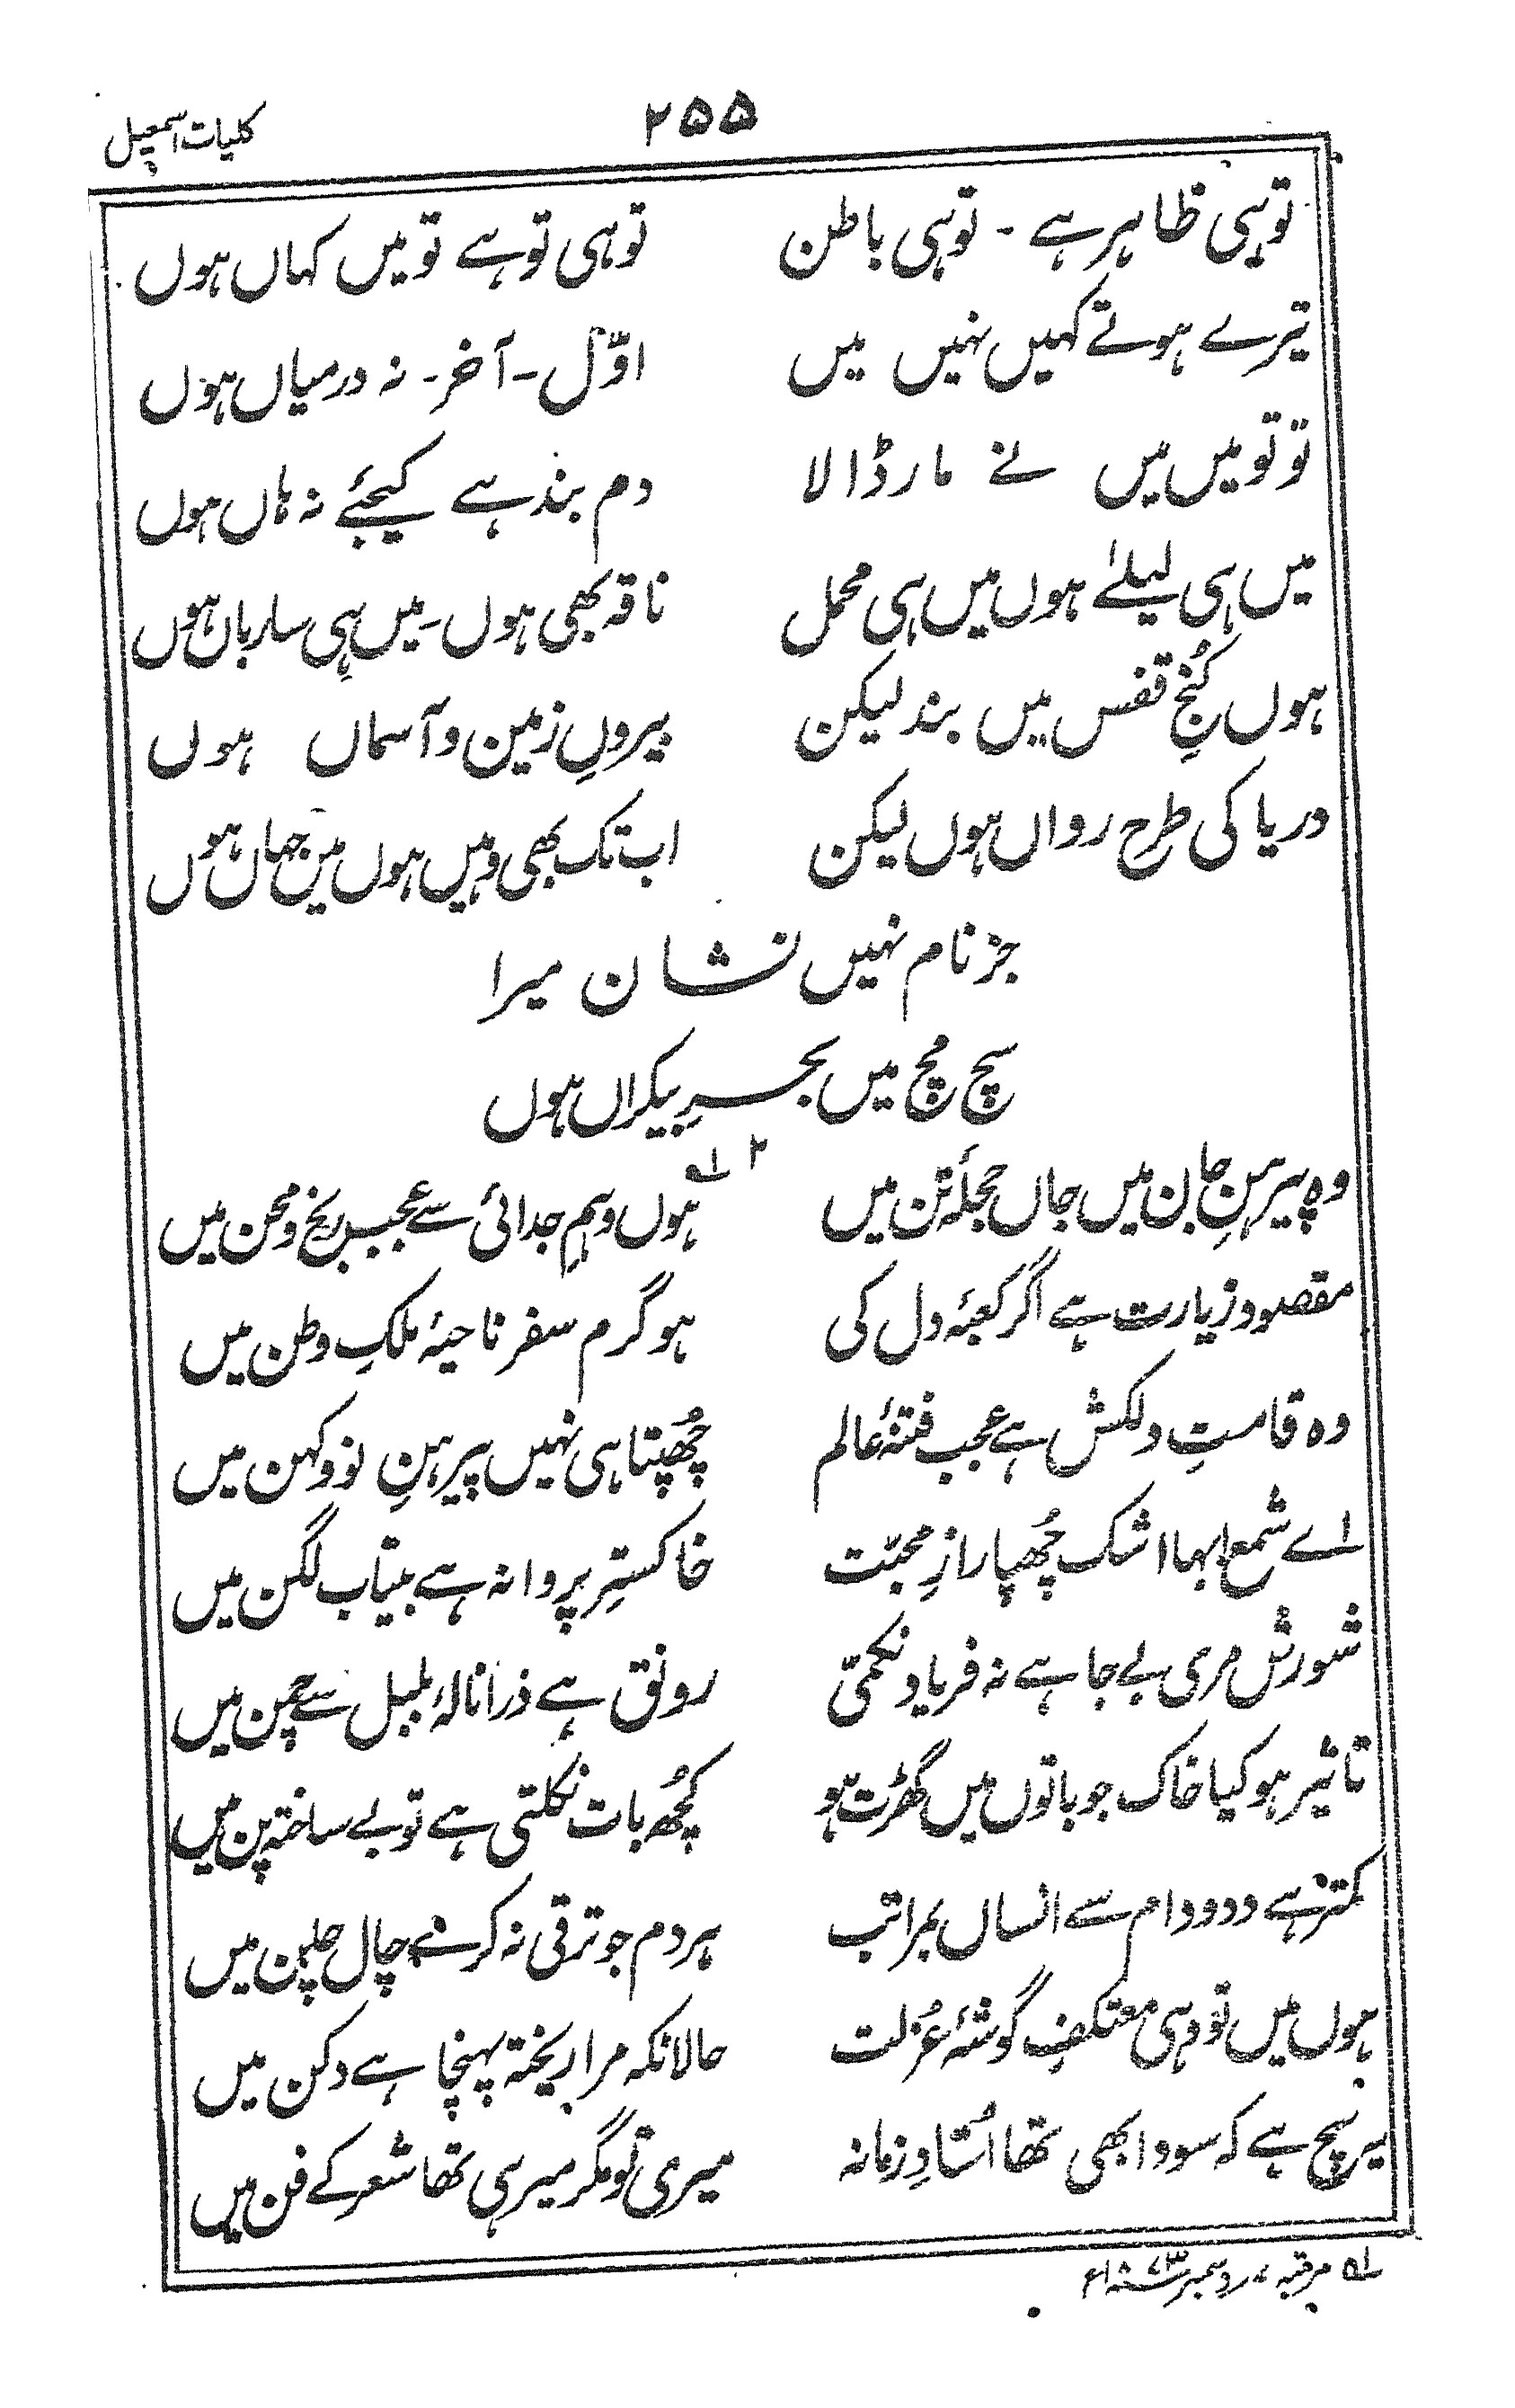 کلیات اسمٰعیل ۲۵۵
تو ہی ظاہر ہے - تو ہی باطن تو ہی تو ہے تو میں کہاں ہوں
تیرے ہوتے کہیں نہیں میں اوّل - آخر - نہ درمیاں ہوں
تو تو میں میں نے مار ڈالا دم بند ہے کیجئے نہ ہاں ہوں
میں ہی لیلےٰ ہوں میں ہی محمل ناقہ بھی ہوں - میں ہی ساربان ہوں
ہوں کُنجِ قفس میں بند لیکن بیروںِ زمین و آسماں ہوں
دریا کی طرح رواں ہوں لیکن اب تک بھی وہیں ہوں میں جہاں ہوں
جز نام نہیں نشان میرا
سچ مچ میں بحرِ بیکراں ہوں
۲ ؎۱
وہ پیرہنِ جان میں جاں حجلۂ تن میں ہوں وہمِ جدائی سے عجب رنج و محن میں
مقصود زیارت ہے اگر کعبۂ دل کی ہو گرم سفر ناحیۂ ملکِ وطن میں
وہ قامتِ دلکش ہے عجب فتنۂ عالم چُھپتا ہی نہیں پیرہنِ نو و کہن میں
اے شمع بہا اشک چُھپا رازِ محبّت خاکسترِ پروانہ ہے بیتاب لگن میں
شورش مری بے جا ہے نہ فریاد نکمّی رونق ہے ذرا نالۂ بلبل سے چمن میں
تاثیر ہو کیا خاک جو باتوں میں گھڑت ہو کچُھ بات نکلتی ہے تو بے ساختہ پن میں
کمتر ہے دد و دام سے انساں بمراتب ہر دم جو ترقی نہ کرے چال چلن میں
ہوں میں تو وہی معتکفِ گوشۂ عُزلت حالانکہ مرا ریختہ پہنچا ہے دکن میں
یہ سچ ہے کہ سودا بھی تھا اُستادِ زمانہ میری تو مگر میر ہی تھا شعر کے فن میں
؎۱ مرقبہ ۷ دسمبر ۱۸۷۳ء